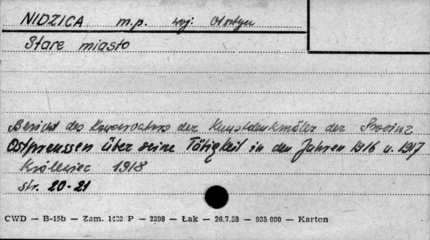 NIDZICA m.p. woj. Olsztyn
Stare miasto
Bericht des Konservators der Kunstdenkmäler der Provinz
Ostpreussen über seine Tätigkeit in den Jahren 1916 u. 1917
Królewiec 1918
str. 20-21
CWD — B-15b — Zam. 1432 P — 2398 — Łak — 26.7.58 — 935 000 — Karton